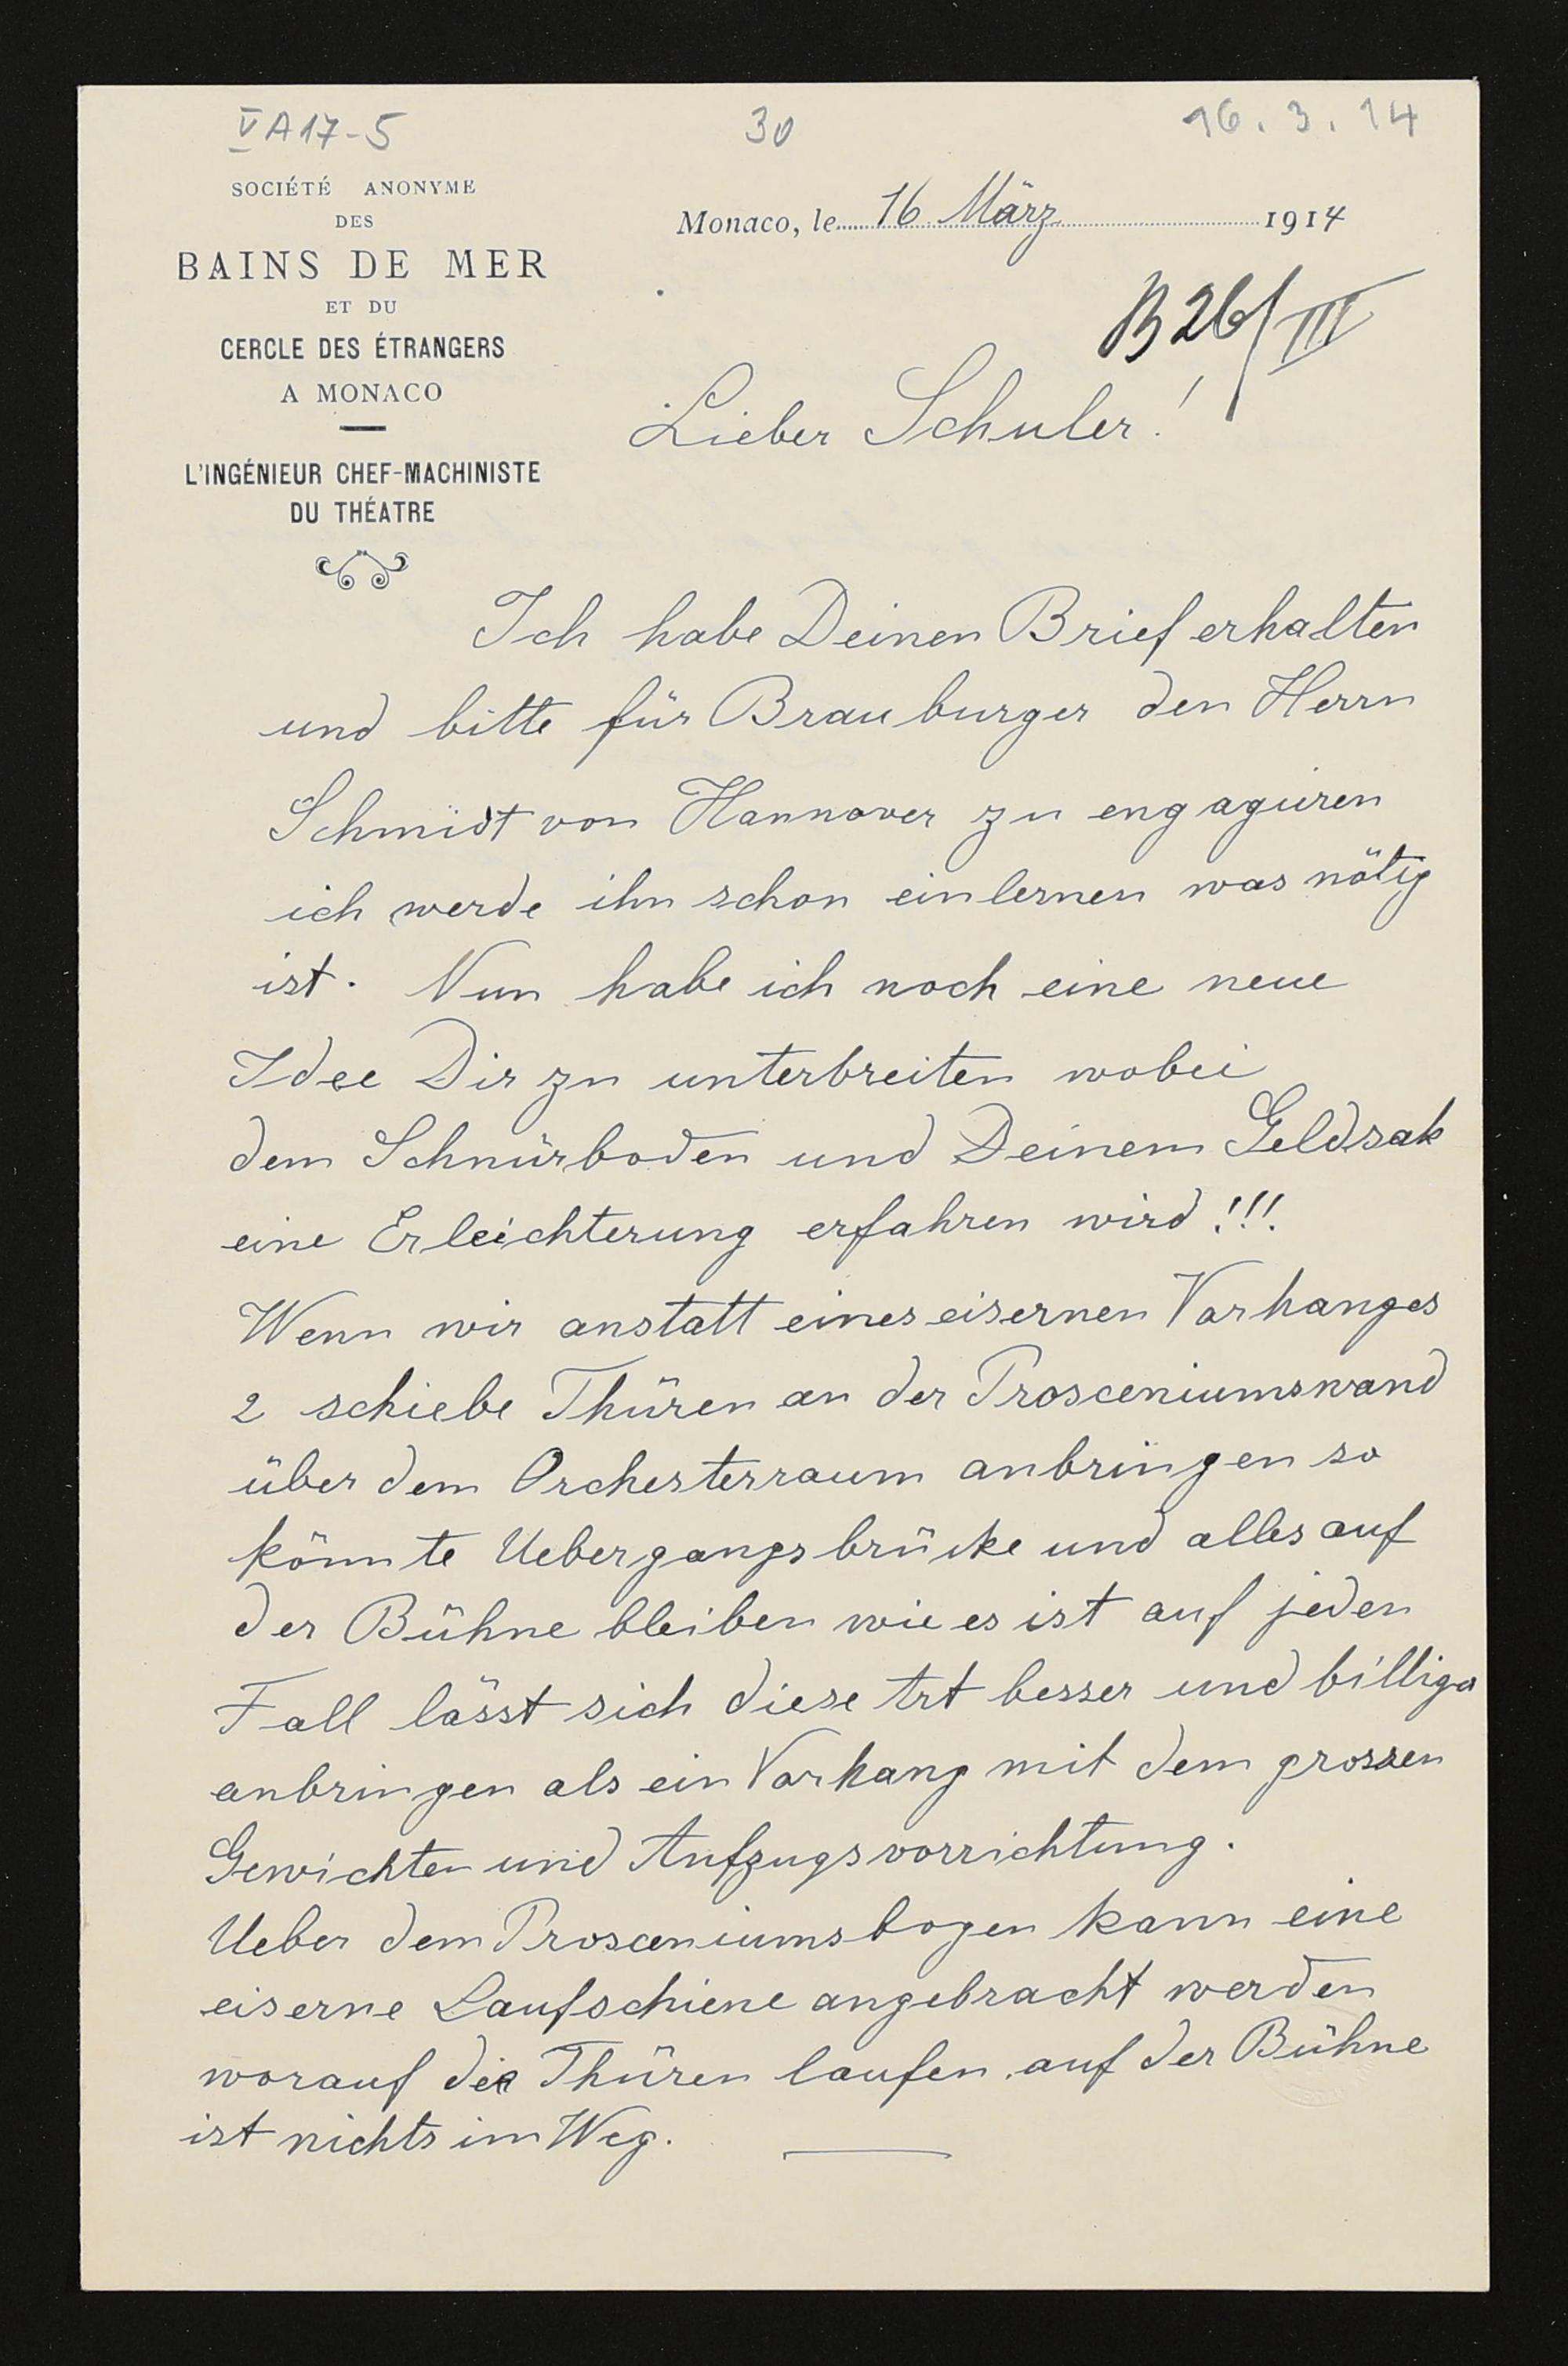 V A 17-5
30
16. 3. 14
SOCIÉTÉ ANONYME
DES
BAINS DE MER
ET DU
CERCLE DES ÉTRANGERS
A MONACO
L'INGÉNIEUR CHEF-MACHINISTE
DU THÉATRE
Monaco, le 16 März 1914
B 26/III
Lieber Schuler!
Ich habe Deinen Brief erhalten
und bitte für Brauburger den Herrn
Schmidt von Hannover zu engagieren
ich werde ihn schon einlernen was nötig
ist. Nun habe ich noch eine neue
Idee Dir zu unterbreiten wobei
dem Schnürboden und Deinem Geldsak
eine Erleichterung erfahren wird!!!
Wenn wir anstatt eines eisernen Vorhanges
2 schiebe Thüren an der Prosceniumswand
über dem Orchesterraum anbringen so
könnte Uebergangsbrücke und alles auf
der Bühne bleiben wie es ist auf jeden
Fall lässt sich diese Art besser und billiger
anbringen als ein Vorhang mit dem grossen
Gewichten und Aufzugsvorrichtung.
Ueber dem Prosceniumsbogen kann eine
eiserne Laufschiene angebracht werden
worauf die Thüren laufen auf der Bühne
ist nichts im Weg.